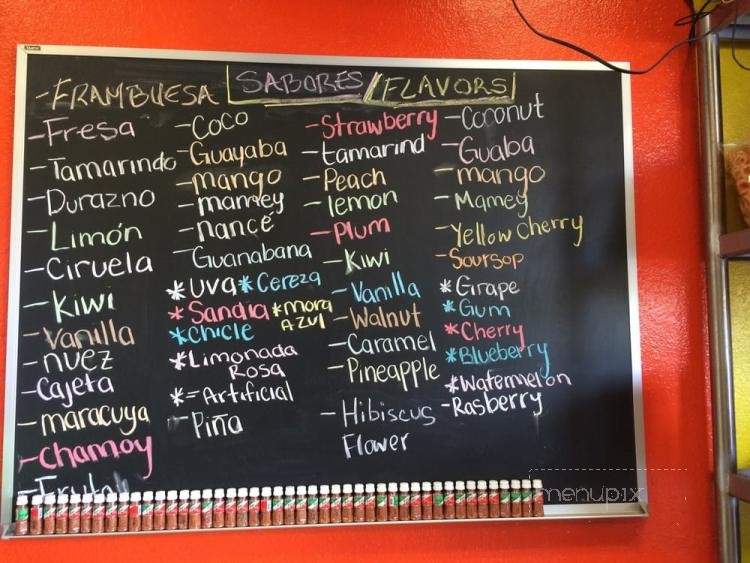 SABORES/FLAVORS
-FRAMBUESA
-Fresa
-Tamarindo
-Durazno
-Limón
-Ciruela
-Kiwi
-Vanilla
-nuez
-Cajeta
-maracuya
-Chamoy
-Coco
-Guayaba
-mango
-mamey
-nancé
-Guanabana
*uva *Cereza
*Sandia *mora
AZUL
*chicle
*Limonada
Rosa
*=Artificial
-Piña
-Strawberry
-tamarind
-Peach
-lemon
-Plum
-Kiwi
-Vanilla
-Walnut
-Caramel
-Pineapple
-Hibiscus
Flower
-Coconut
-Guaba
-mango
-Mamey
-Yellow Cherry
-Soursop
*Grape
*Gum
*Cherry
*Blueberry
*Watermelon
-Rasberry
menupix